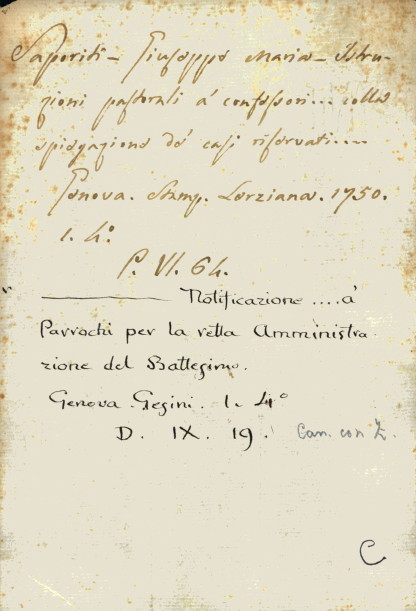 Saporiti - Giuseppe Maria - Istru-
zioni pastorali a' confessori... colla
spiegazione de' casi riservati....
Genova. Stamp. Lerziana. 1750.
1. 4.°
P. VI. 64.
——— Notificazione .... a'
Parrochi per la retta Amministra
zione del Battesimo.
Genova. Gesini. 1. 4°
D. IX. 19. Can. con Z.
C